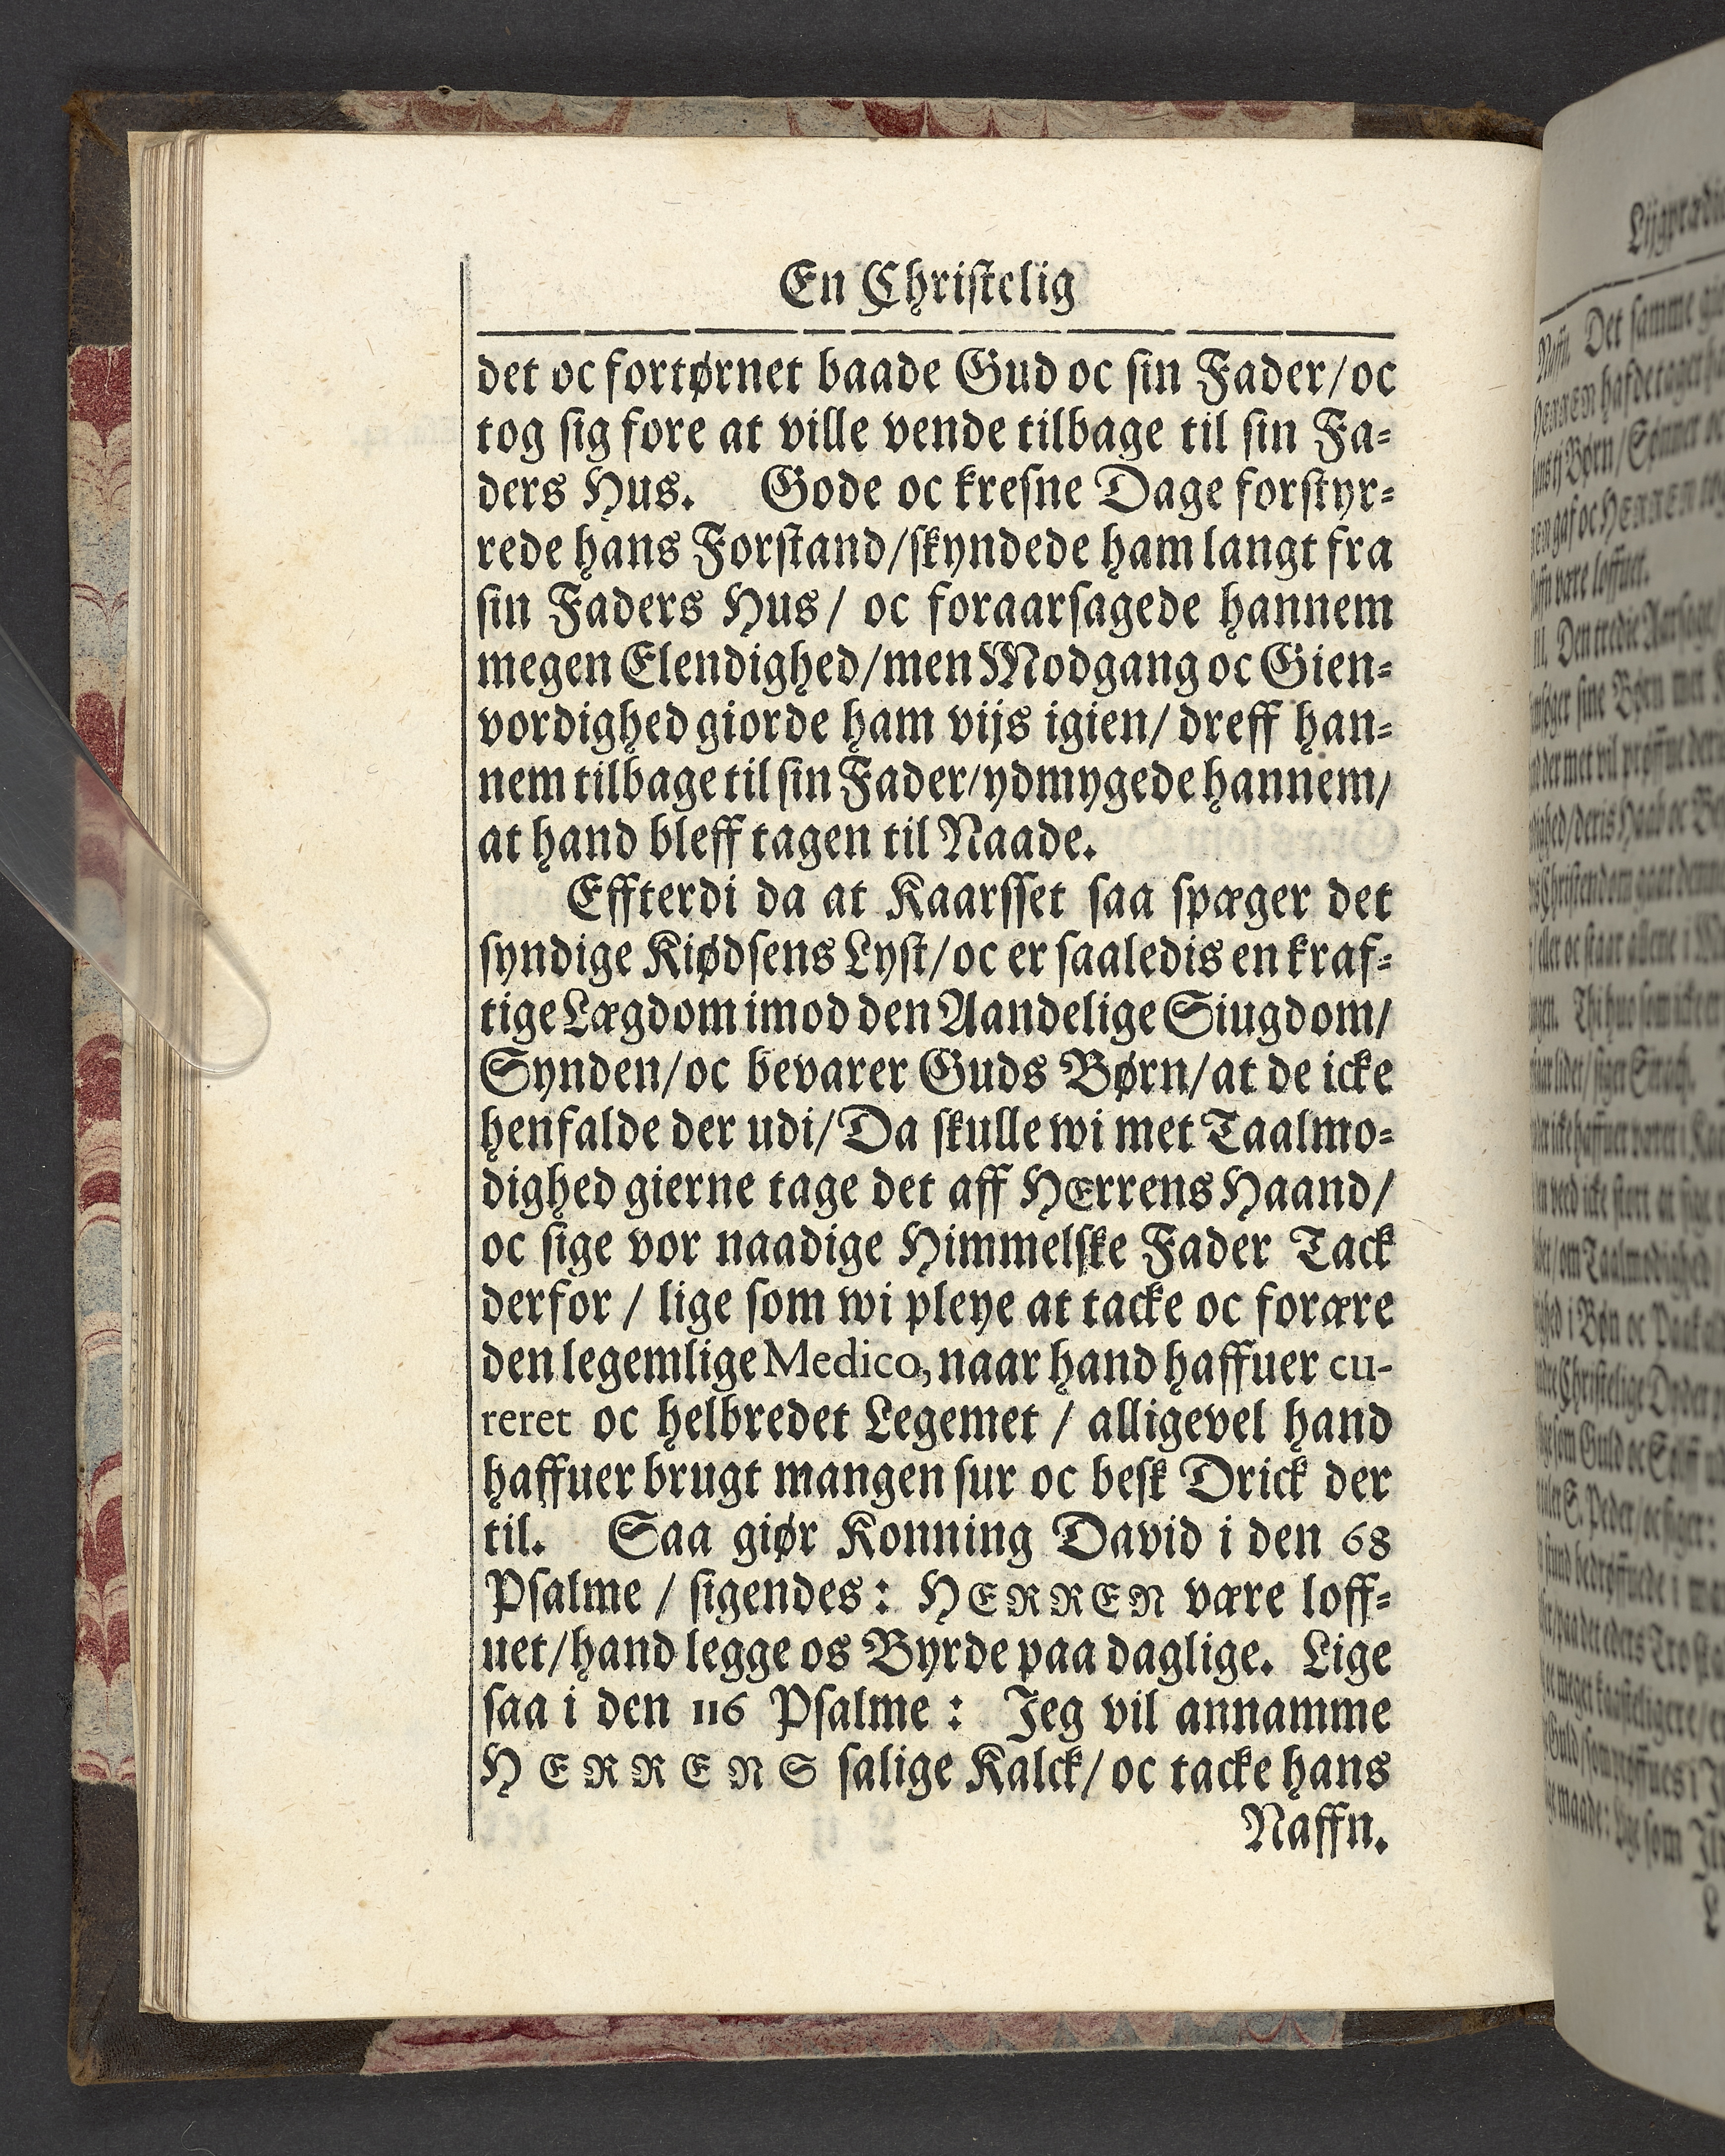 En Christelig
det oc fortørnet baade Gud oc sin Fader/oc
tog sig fore at ville vende tilbage til sin Fa-
ders Hus. Gode oc kresne Dage forstyr-
rede hans Forstand/skyndede ham langt fra
sin Faders Hus/ oc foraarsagede hannem
megen Elendighed/men Modgang oc Gien-
vordighed giorde ham vijs igien/ dreff han-
nem tilbage til sin Fader/ydmygede hannem/
at hand bleff tagen til Naade.
Effterdi da at Kaarsset saa spæger det
syndige Kiødsens Lyst/oc er saaledis en kraf-
tige Lægdom imod den Aandelige Siugdom/
Synden/oc bevarer Guds Børn/at de icke
henfalde der udi/Da skulle wi met Taalmo-
dighed gierne tage det aff HErrens Haand/
oc sige vor naadige Himmelske Fader Tack
derfor / lige som wi pleye at tacke oc forære
den legemlige Medico, naar hand haffuer cu-
reret oc helbredet Legemet / alligevel hand
haffuer brugt mangen sur oc besk Drick der
til. Saa giør Konning David i den 68
Psalme / sigendes: HERREN være loff-
uet/hand legge os Byrde paa daglige. Lige
saa i den 116 Psalme: Jeg vil annamme
HERRENS salige Kalck/ oc tacke hans
Naffn.
Naffn. Det samme
Børn/Sønner oc
gaf oc HERREN
være loffuet.
III. Den tredie Aarsage
sine Børn met
der met vil prøffue
deris Haab oc
Christendom
Guld oc Sølff
S. Peder/oc siger: